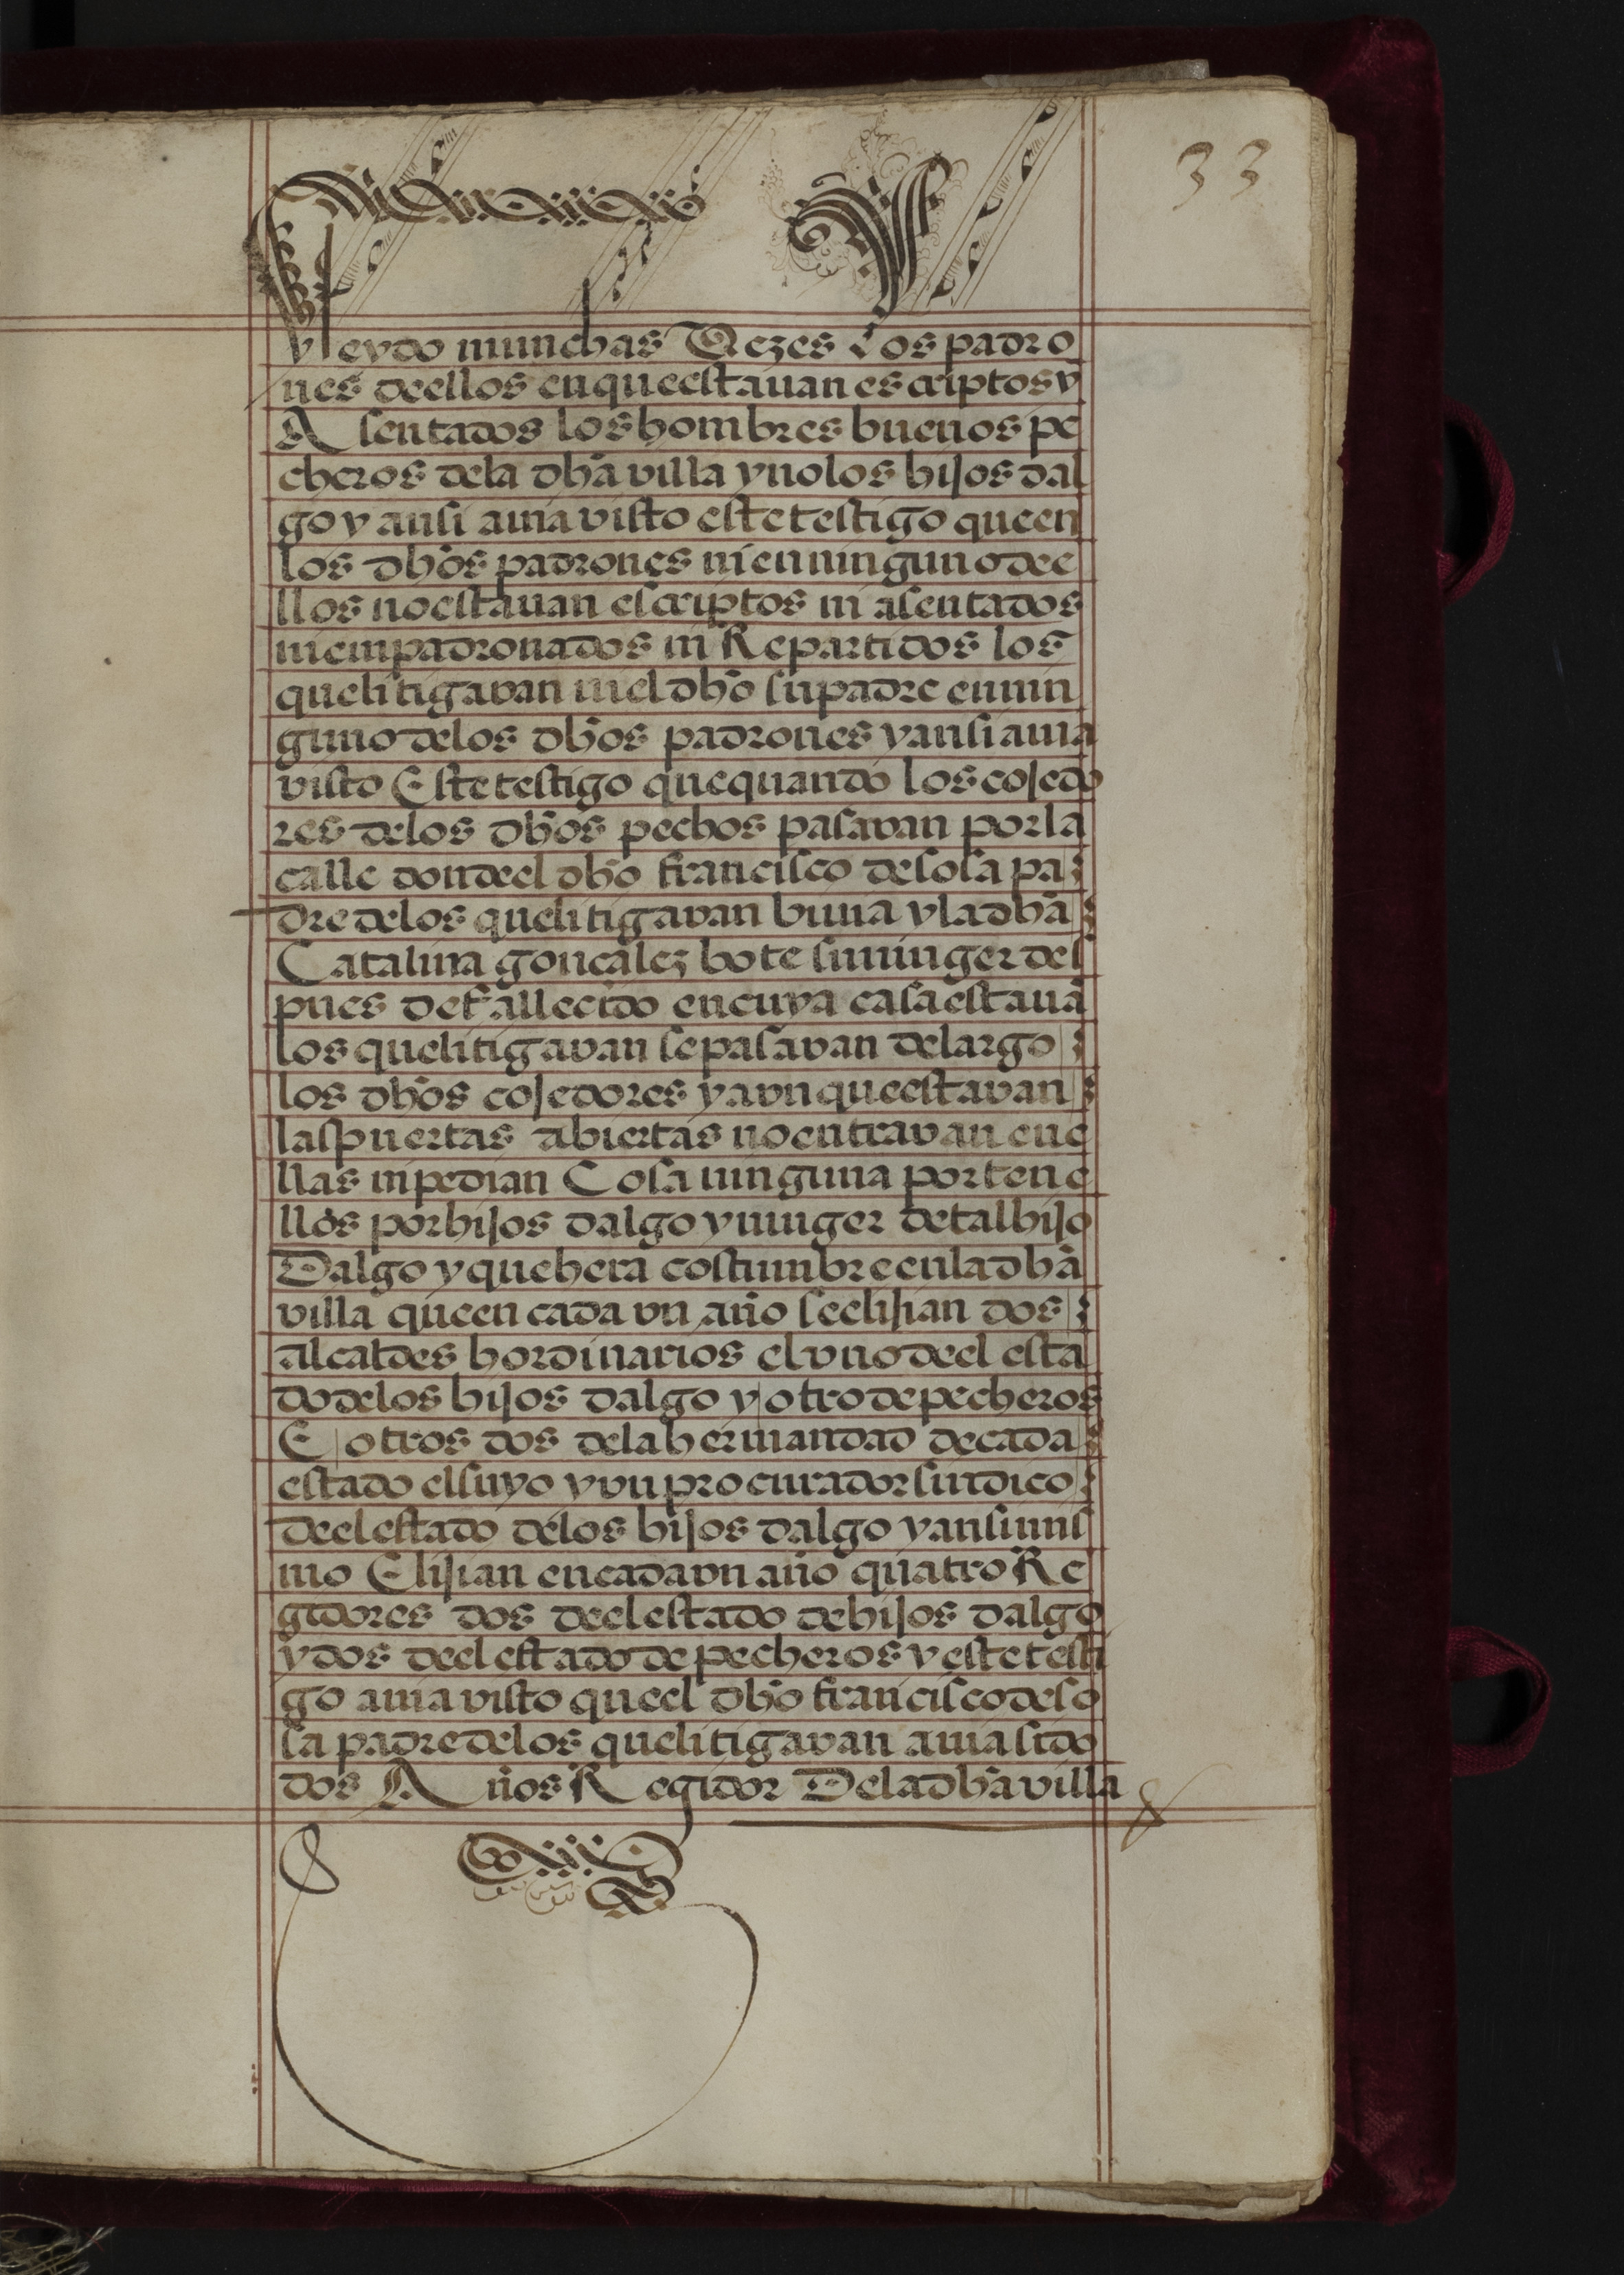 33
y leydo munchas Vezes Los padro
nes deellos enqueestauan escriptos y
Asentados los hombres buenos pe
cheros dela dha villa ynolos hijos dal
go y ansi auia visto este testigo queen
los dhos padrones ni en ninguno dee
llos noestauan escriptos ni asentados
niempadronados ni Repartidos los
quelitigavan niel dho su padre en nin
guno delos dhos padrones yansi auia
visto Este testigo que quando los cojedo
res delos dhos pechos pasavan por la
calle dondeel dho francisco desosa pa
dre delos quelitigavan biuia y la dha
Catalina goncalez bote su muger des
pues defallecido en cuya casa estaua
los quelitigavan sepasavan delargo
los dhos cojedores y avnqueestavan
las puertas abiertas noentravan ene
llas ni pedian Cosa ninguna portene
llos por hijos dalgo y muger de tal hijo
Dalgo y que hera costumbre en la dha
villa queen cada vn año seelijian dos
alcaldes hordinarios el vno deel esta
do delos hijos dalgo y otro de pecheros
E otros dos dela hermandad de cada
estado elsuyo y vn procurador sindico
deelestado delos hijos dalgo yansimis
mo Elijian encadavn año quatro Re
gidores dos deelestado dehijos dalgo
y dos deelestado de pecheros y este testi
go auia visto queel dho francisco deso
sa padre delos quelitigavan auia sido
dos Años Regidor Dela dha villa